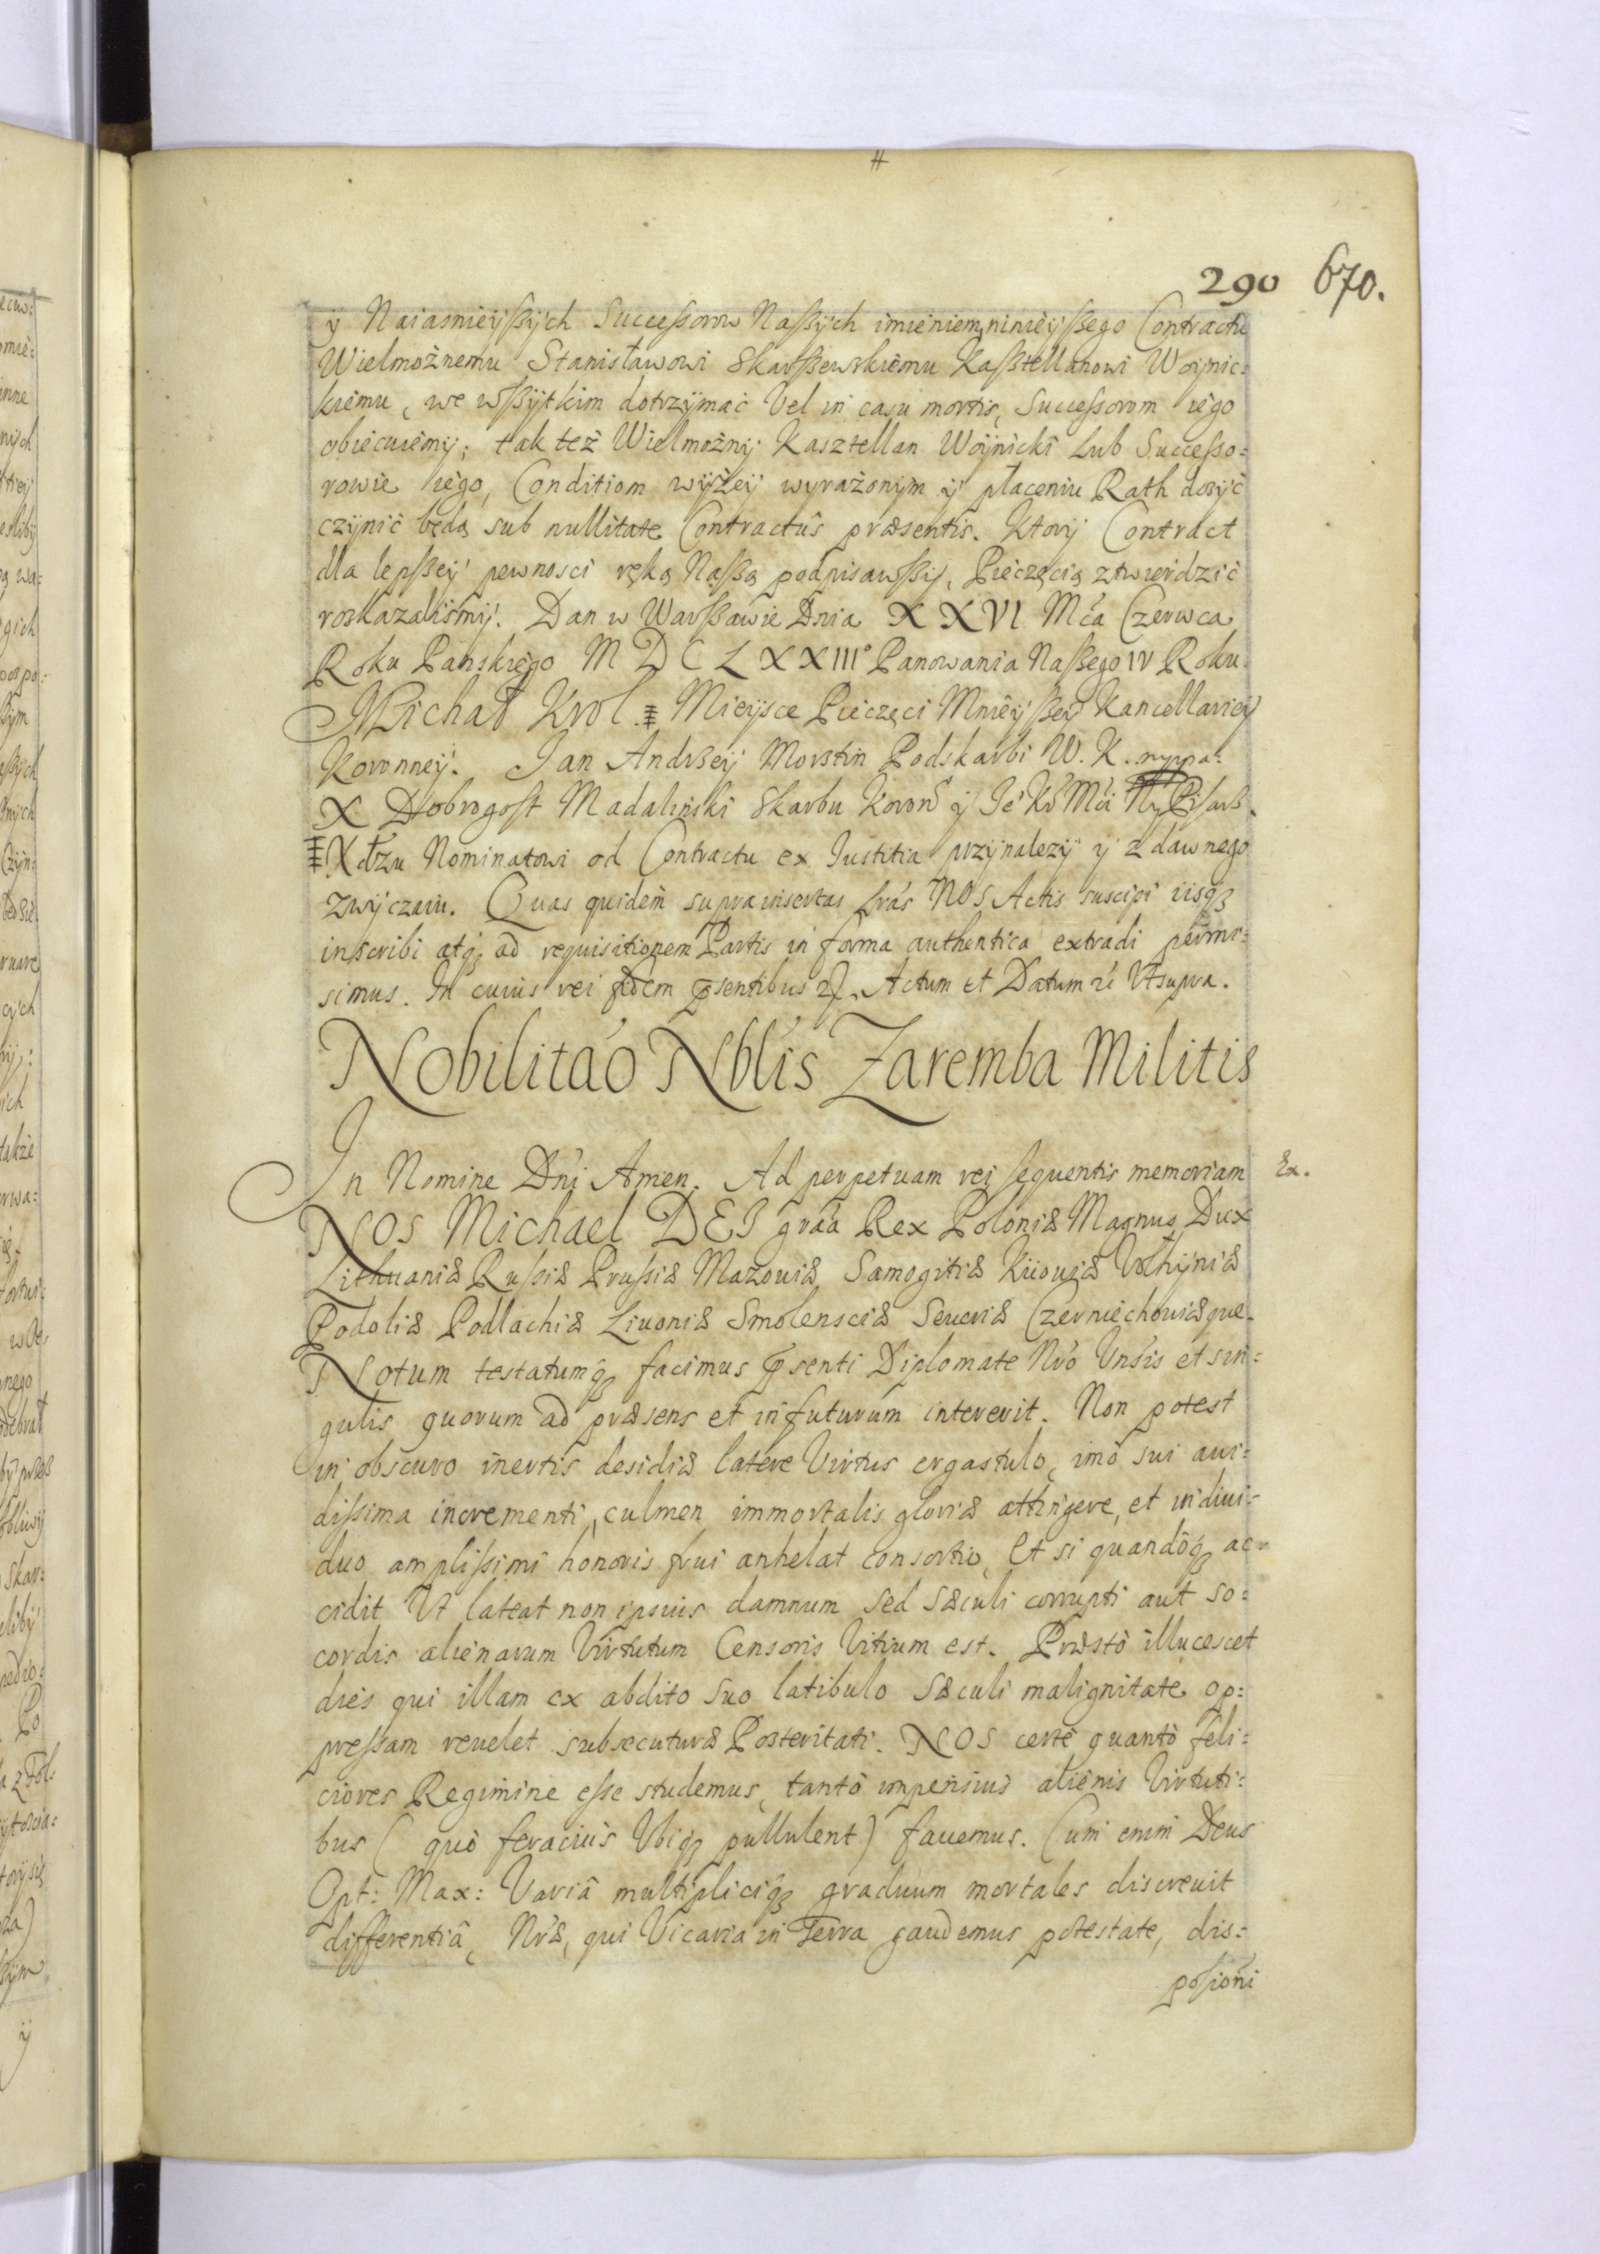 290 670.
ÿ Naiasnieÿßÿch Succeßorow Naßÿch imieniem, ninieÿßego Contractu
Wielmożnemu Stanisławowi Skarßewskiemu Kaßtellanowi Woÿnic:
kiemu, we wßÿtkim dotrzÿmać Vel in casu mortis, Succeßorom iego
obiecuiemÿ; tak też Wielmożnÿ Kasztellan Woÿnicki lub Succeßo:
rowie iego, Conditiom wÿżeÿ wyrażonÿm ÿ płaceniu Rath dosÿć
czÿnić będą sub nullitate Contractûs præsentis. Ktorÿ Contract
dla lepßeÿ pewnosci ręką Naßą podpisawßÿ, Pieczęcią ztwierdzić
roskazaliśmÿ. Dan w Warßawie Dnia XXVI Mća Czerwca
Roku Panskiego MDCLXXIII° Panowania Naßego IV Roku.
Michał Krol. Mieÿsce Pieczęci Mnieÿßeÿ Kancellarieÿ
Koronneÿ. Jan Andrzeÿ Morstin Podskarbi W. K. mppa:
X Dobrogost Madaliński Skarbu Koron ÿ Je Kr Mći Pisarz.
X dłzu Nominatowi od Contractu ex Iustitia przÿnalezÿ ÿ z dawnego
zwÿczaiu. Quas quidem suprainsertas lrás NOS Actis suscipi iisqꝫ
inscribi atqꝫ ad requisitionem Partis in forma authentica extradi permi:
simus. In cuius rei fidem pſentibus Actum et Datum Utsupra.
Nobilitáo Nblis Zaremba Militis
In Nomine Dńi Amen. Ad perpetuam rei sequentis memoriam Ex.
NOS Michael DEI gráa Rex Poloniæ Magnus Dux
Lithuaniæ Rußiæ Prußiæ Mazouiæ Samogitiæ Kiiouiæ Volhÿniæ
Podoliæ Podlachiæ Liuoniæ Smolensciæ Seueriæ Czerniechouiæque.
Notum testatumqꝫ facimus pſenti Diplomate Nró Vnsis et sin:
gulis quorum ad præsens et in futurum intererit. Non potest
in obscuro inertis desidiæ latere Virtus ergastulo, imò sui aui:
dißima incrementi, culmen immortalis gloriæ attingere, et indiui:
duo amplißimi honoris frui anhelat consortio, Et si quandóqꝫ ac:
cidit Ut lateat non ipsius damnum sed Sæculi corrupti aut so:
cordis alienarum Virtutum Censoris Vitium est. Præstò illucescet
dies qui illam ex abdito suo latibulo Sæculi malignitate op:
preßam reuelet subsecuturæ Posteritati. NOS certè quantò feli:
ciores Regimine eße studemus, tantò impensius alienis Virtuti:
bus (quò feraciùs Ubiqꝫ pullulent) fauemus. Cum enim Deus
Opt: Max: Variâ multipliciqꝫ graduum mortales discreuit
differentiâ, Nræ, qui Vicaria in Terra gaudemus potestate, dis:
posioni